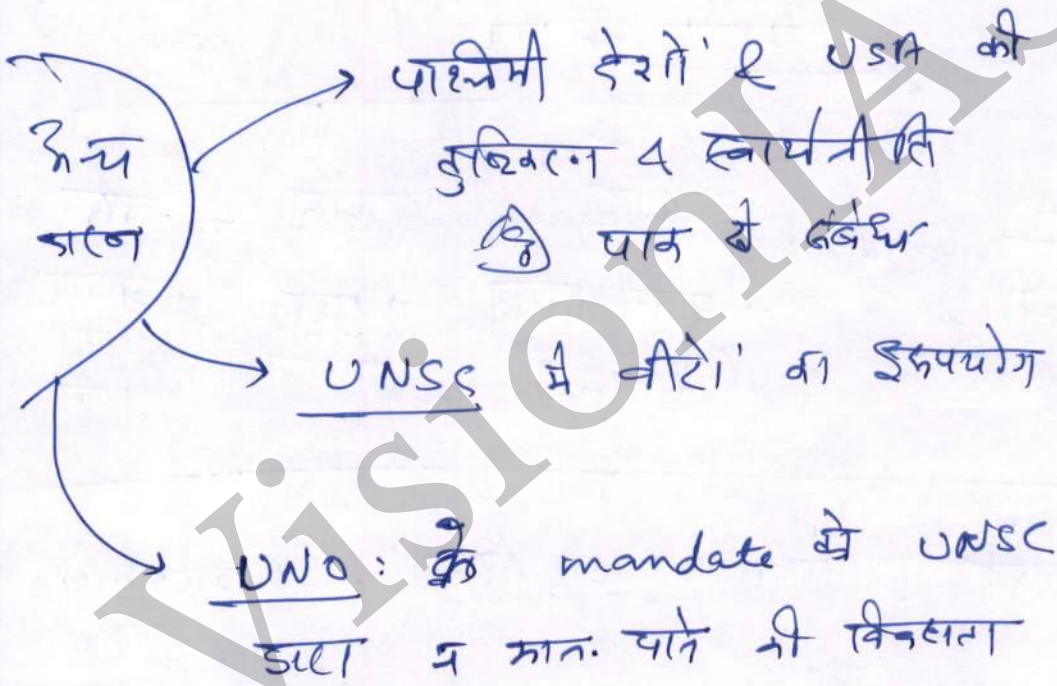 अन्य
कारण
पाश्चिमी देशों & USA की
तुष्टिकरण व स्वार्थनीति
पाक से संबंध
UNSS में वीटों का दुरुपयोग
UNO: के mandate को UNSC
द्वारा न मान. पाने की विफलता
VisionIAS